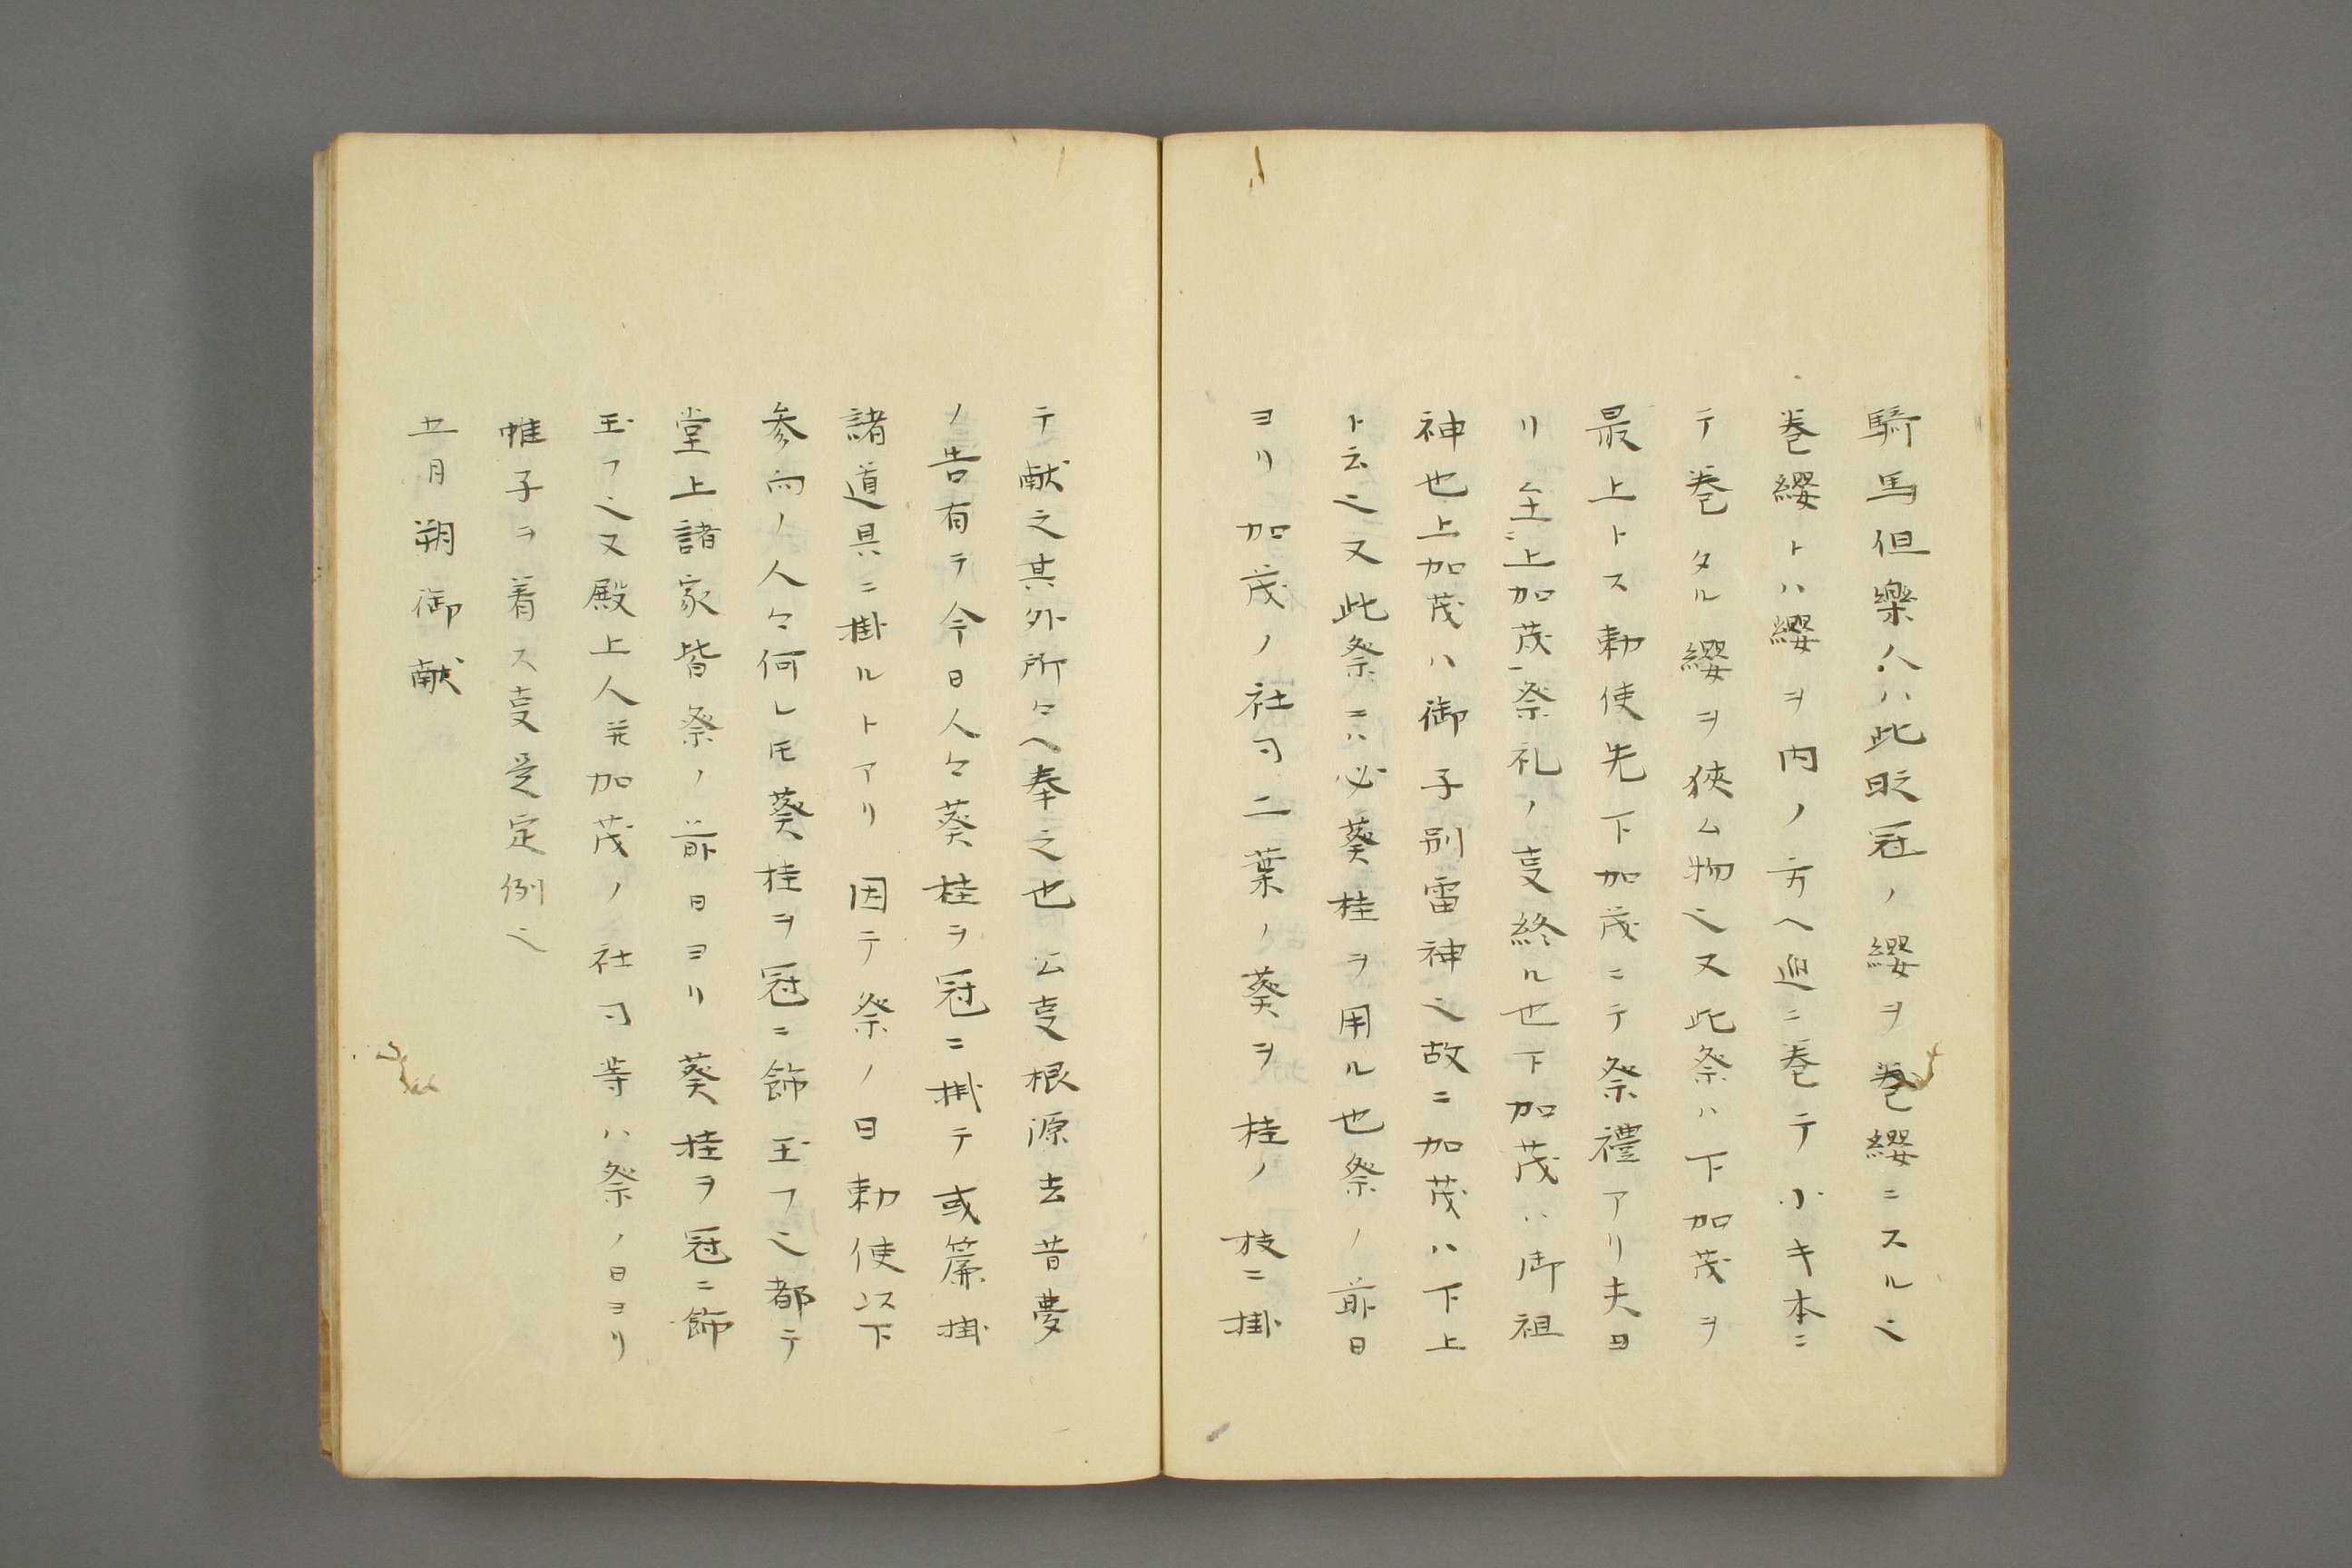 騎馬但樂人ハ此時冠ノ纓ヲ巻纓ニスル也
巻纓トハ纓ヲ内ノ方ヘ逆ニ巻テ小キ本ニ
テ巻タル纓ヲ狹ム物也又此祭ハ下加茂ヲ
最上トス勅使先下加茂ニテ祭禮アリ夫ヨ
リ至上加茂ニ祭礼ノ㕝終ル也下加茂ハ御祖
神也上加茂ハ御子別雷神也故ニ加茂ハ下上
ト云也又此祭ニハ必葵桂ヲ用ル也祭ノ前日
ヨリ加茂ノ社司二葉ノ葵ヲ桂ノ枝ニ掛
テ献之其外所々ヘ奉之也公㕝根源去昔夢
ノ告有テ今日人々葵桂ヲ冠ニ掛テ或簾掛
諸道具ニ掛ルトアリ因テ祭ノ日勅使以下
参向ノ人々何レモ葵桂ヲ冠ニ飾玉フ也都テ
堂上諸家皆祭ノ前日ヨリ葵桂ヲ冠ニ飾
玉フ也又殿上人并加茂ノ社司等ハ祭ノ日ヨリ
帷子ヲ着ス㕝是定例也
五月朔御献